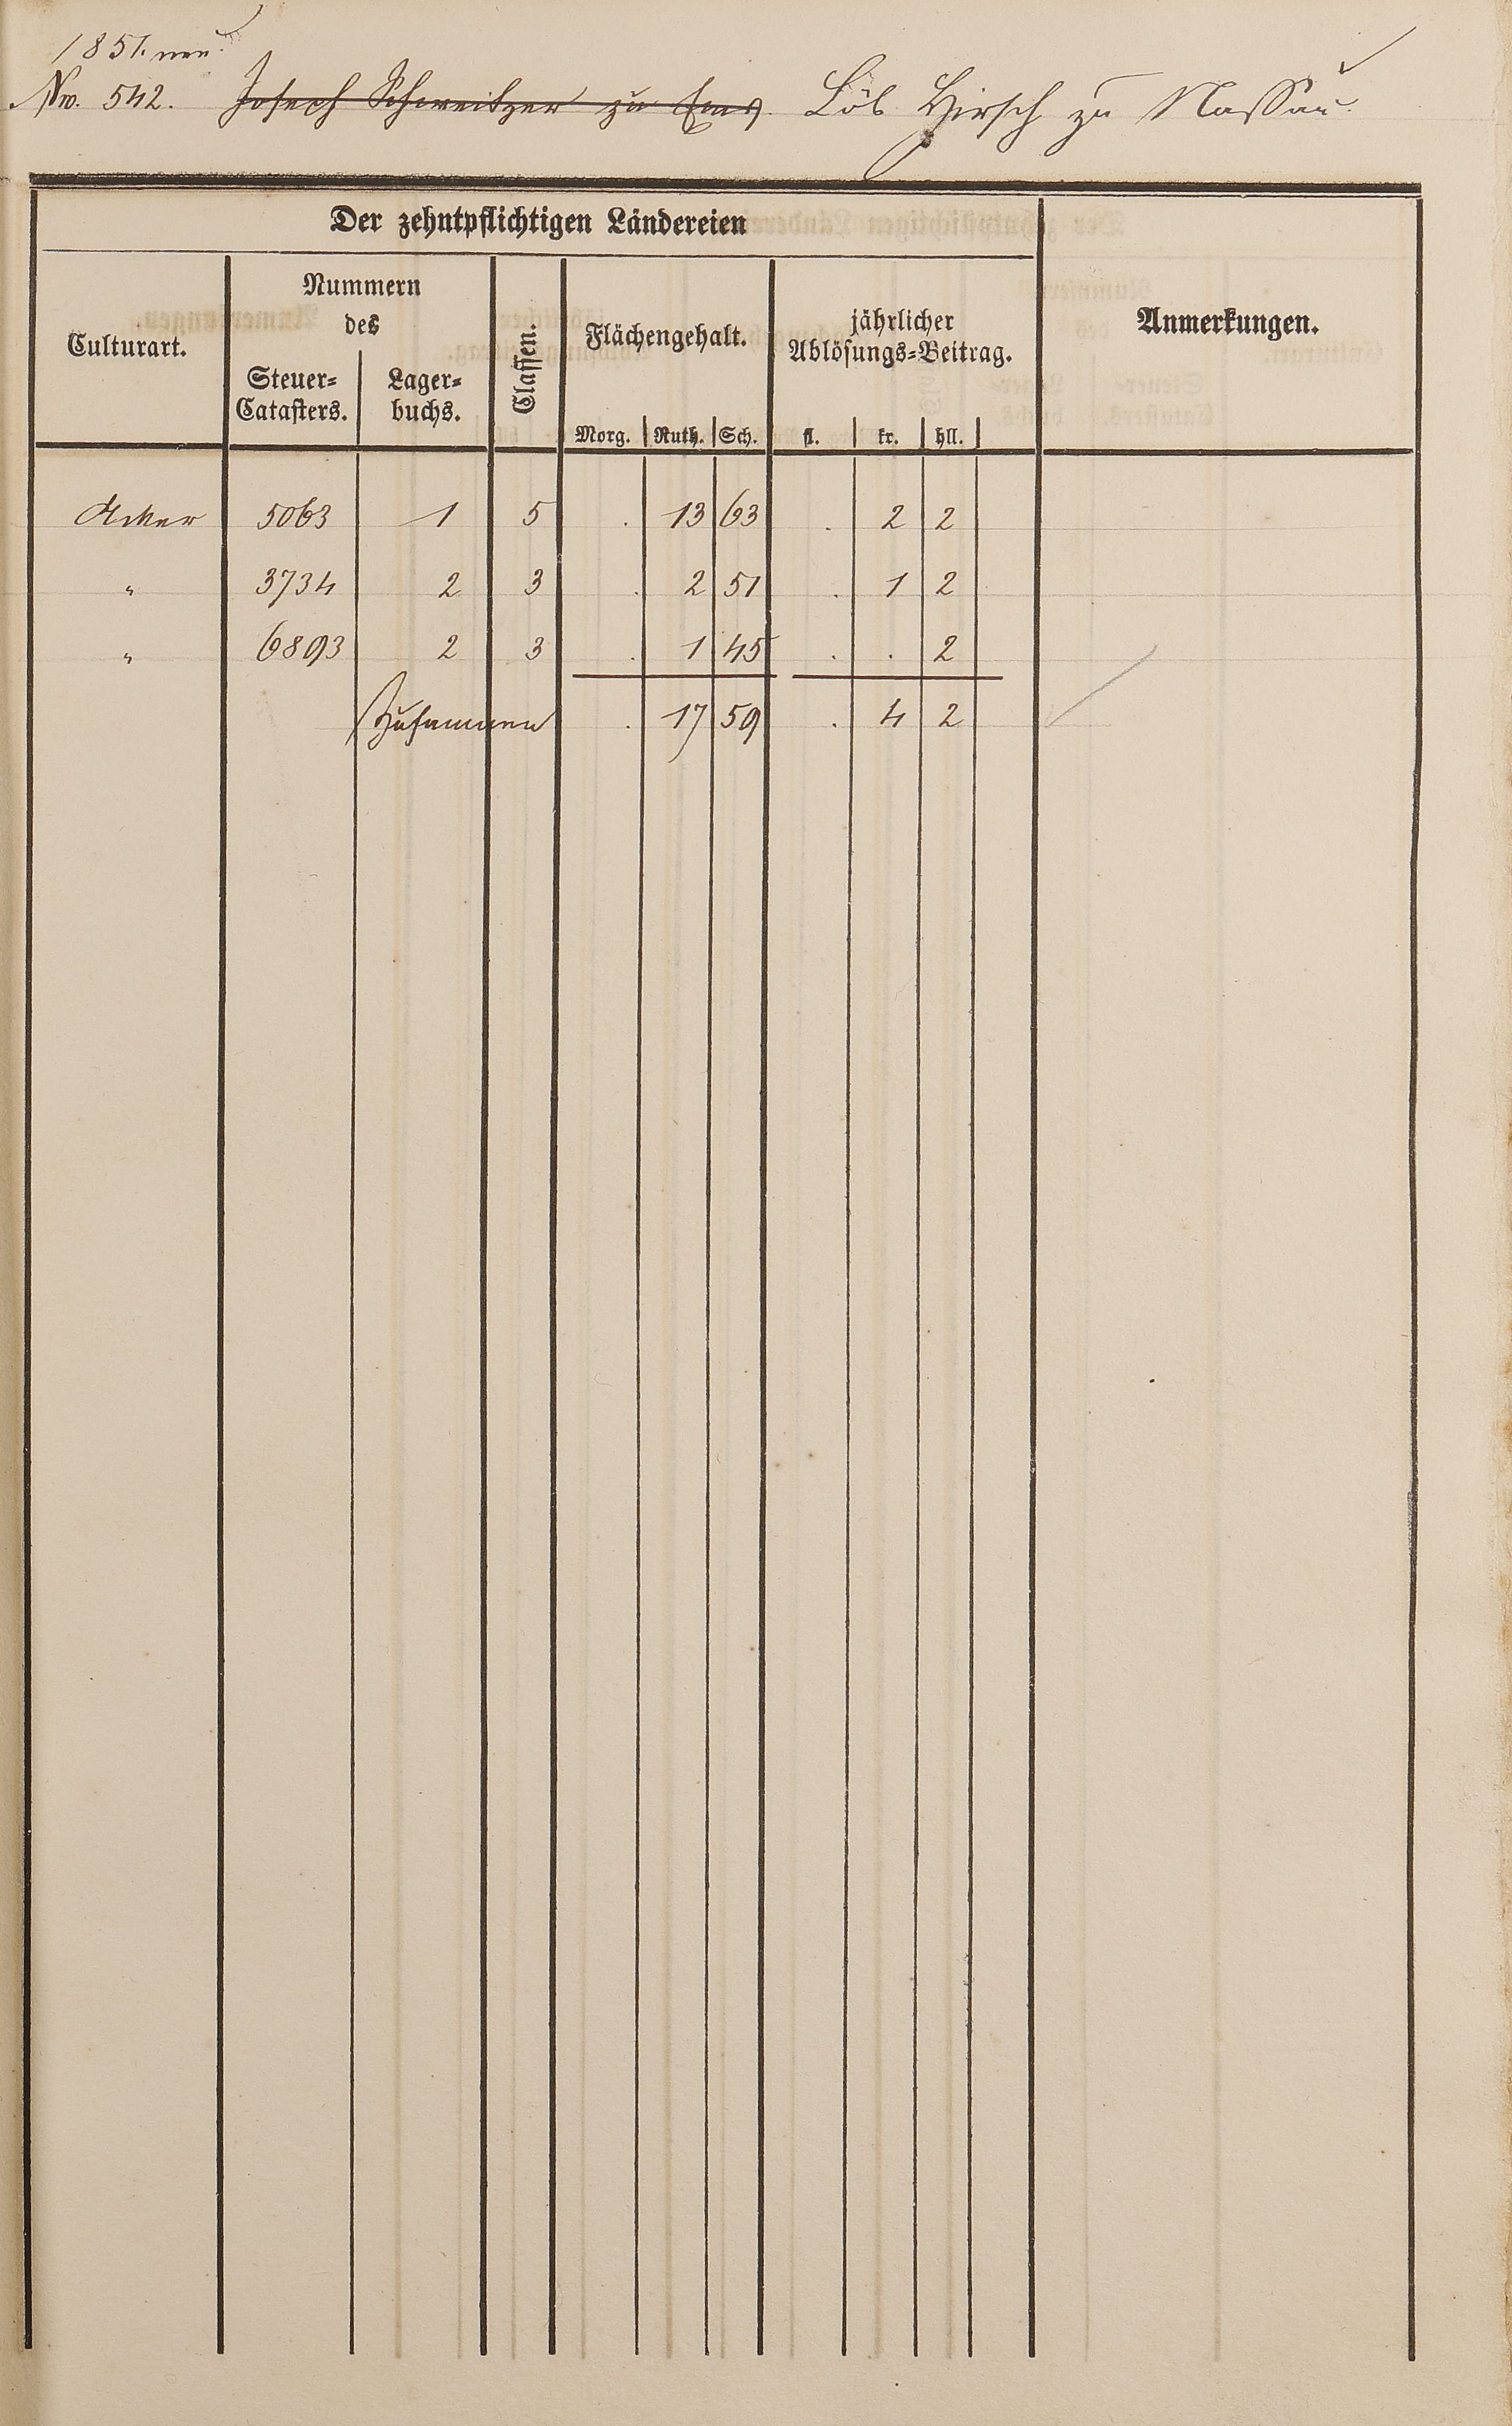 1851. neu.
No. 542. Joseph Schweitzer zu Ems. Löb Hirsch zu Nassau.
Der zehntpflichtigen Ländereien
Culturart. Nummern des Steuer=Catasters. Lager=buchs. Classen. Flächengehalt. jährlicher Ablösungs=Beitrag. Anmerkungen.
Morg. Ruth. Sch. fl. kr. hll.
Acker 5063 1 5 . 13 63 . 2 2
" 3734 2 3 . 2 51 . 1 2
" 6893 2 3 . 1 45 . . 2
Zusammen . 17 59 . 4 2